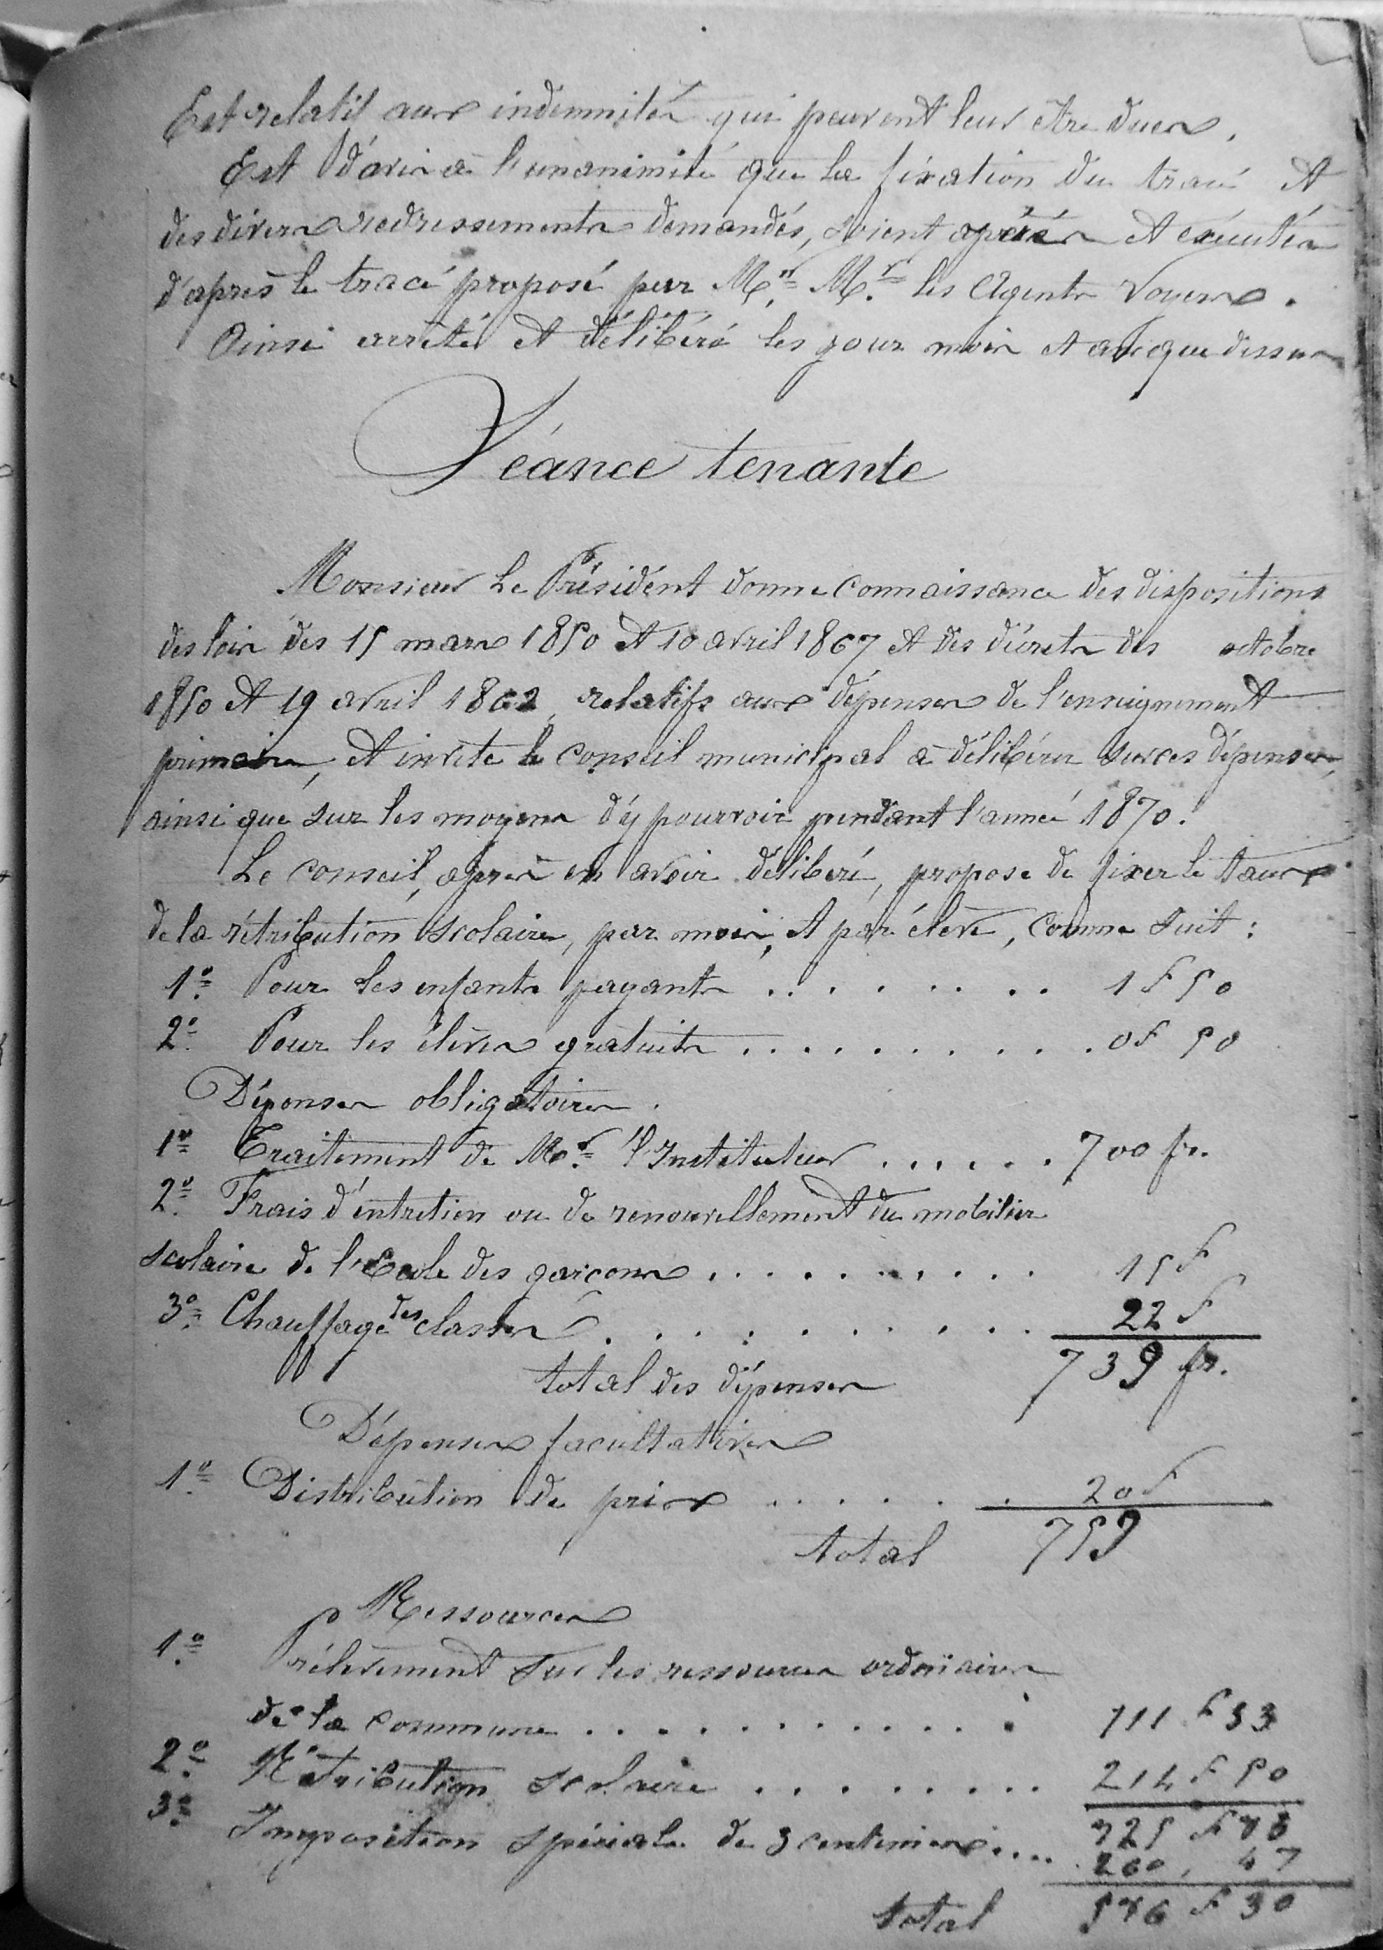 Est relatif aux indemnités qui peuvent leur être dues.
Est d'avis à l'unanimité que la fixation du tracé et
des divers redressements demandés, soient opérés et exécutés
d'après le tracé proposé par M.r M.r les Agents Voyers.
Ainsi arrêté et délibéré les jour mois et an que dessus
Séance tenante
Monsieur Le Président donne connaissance des dispositions
des lois des 15 mars 1850 et 10 avril 1867 et des décrets des octobre
1850 et 19 avril 1862, relatifs aux dépenses de l'enseignement
primaire, et invite le conseil municipal à délibérer sur ces dépenses,
ainsi que sur les moyens d'y pourvoir pendant l'année 1870.
Le conseil, après en avoir délibéré, propose de fixer le taux
de la rétribution scolaire, par mois, et par élève, comme suit :
1.o Pour les enfants payants . . . . . . . . 1 f 50
2.o Pour les élèves gratuits . . . . . . . . . . . 0 f 90
Dépenses obligatoires.
1.o Traitement de Mo.r l'Instituteur . . . . . . 700 fr.
2.o Frais d'entretien ou de renouvellement du mobilier
scolaire de l'Ecole des garçons . . . . . . . . . . 15 f
3.o Chauffage des classes . . . . . . . . . . . 22 f
total des dépenses 739 fr.
Dépenses facultatives
1.o Distribution de prix . . . . . . 20 f
total 759
Ressources
1.o Prélèvement sur les ressources ordinaires
de la commune . . . . . . . . . . . . 111 f 33
2.o Rétribution scolaire . . . . . . . . . 214 f 50
3.o Imposition spéciale de 3 centimes . . . .
260, 47
total